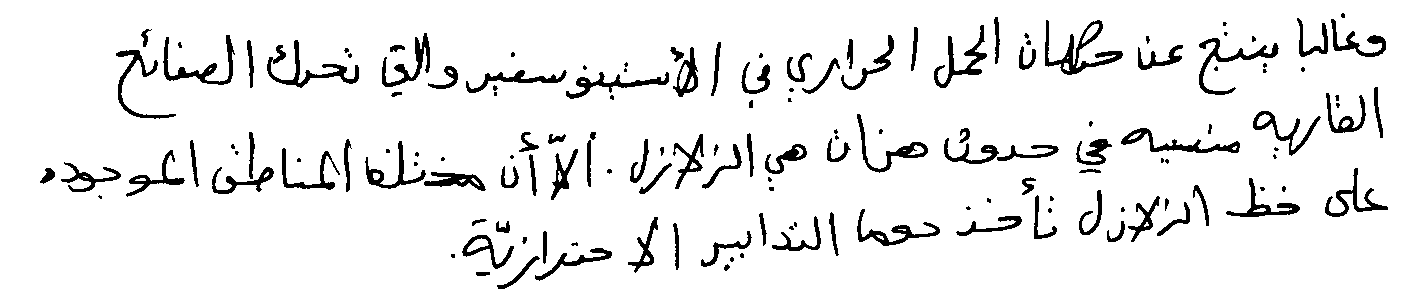 وغالبا ينتج عن حركات الحمل الحراري في الأستينوسفير والتي تحرك الصفائح
القاريه متسببه في حدوث هزات هي الزلازل. ألاّ أن مختلف المناطق الموجوده
على خط الزلازل تأخذ دوما التدابير الاحترازيّة.